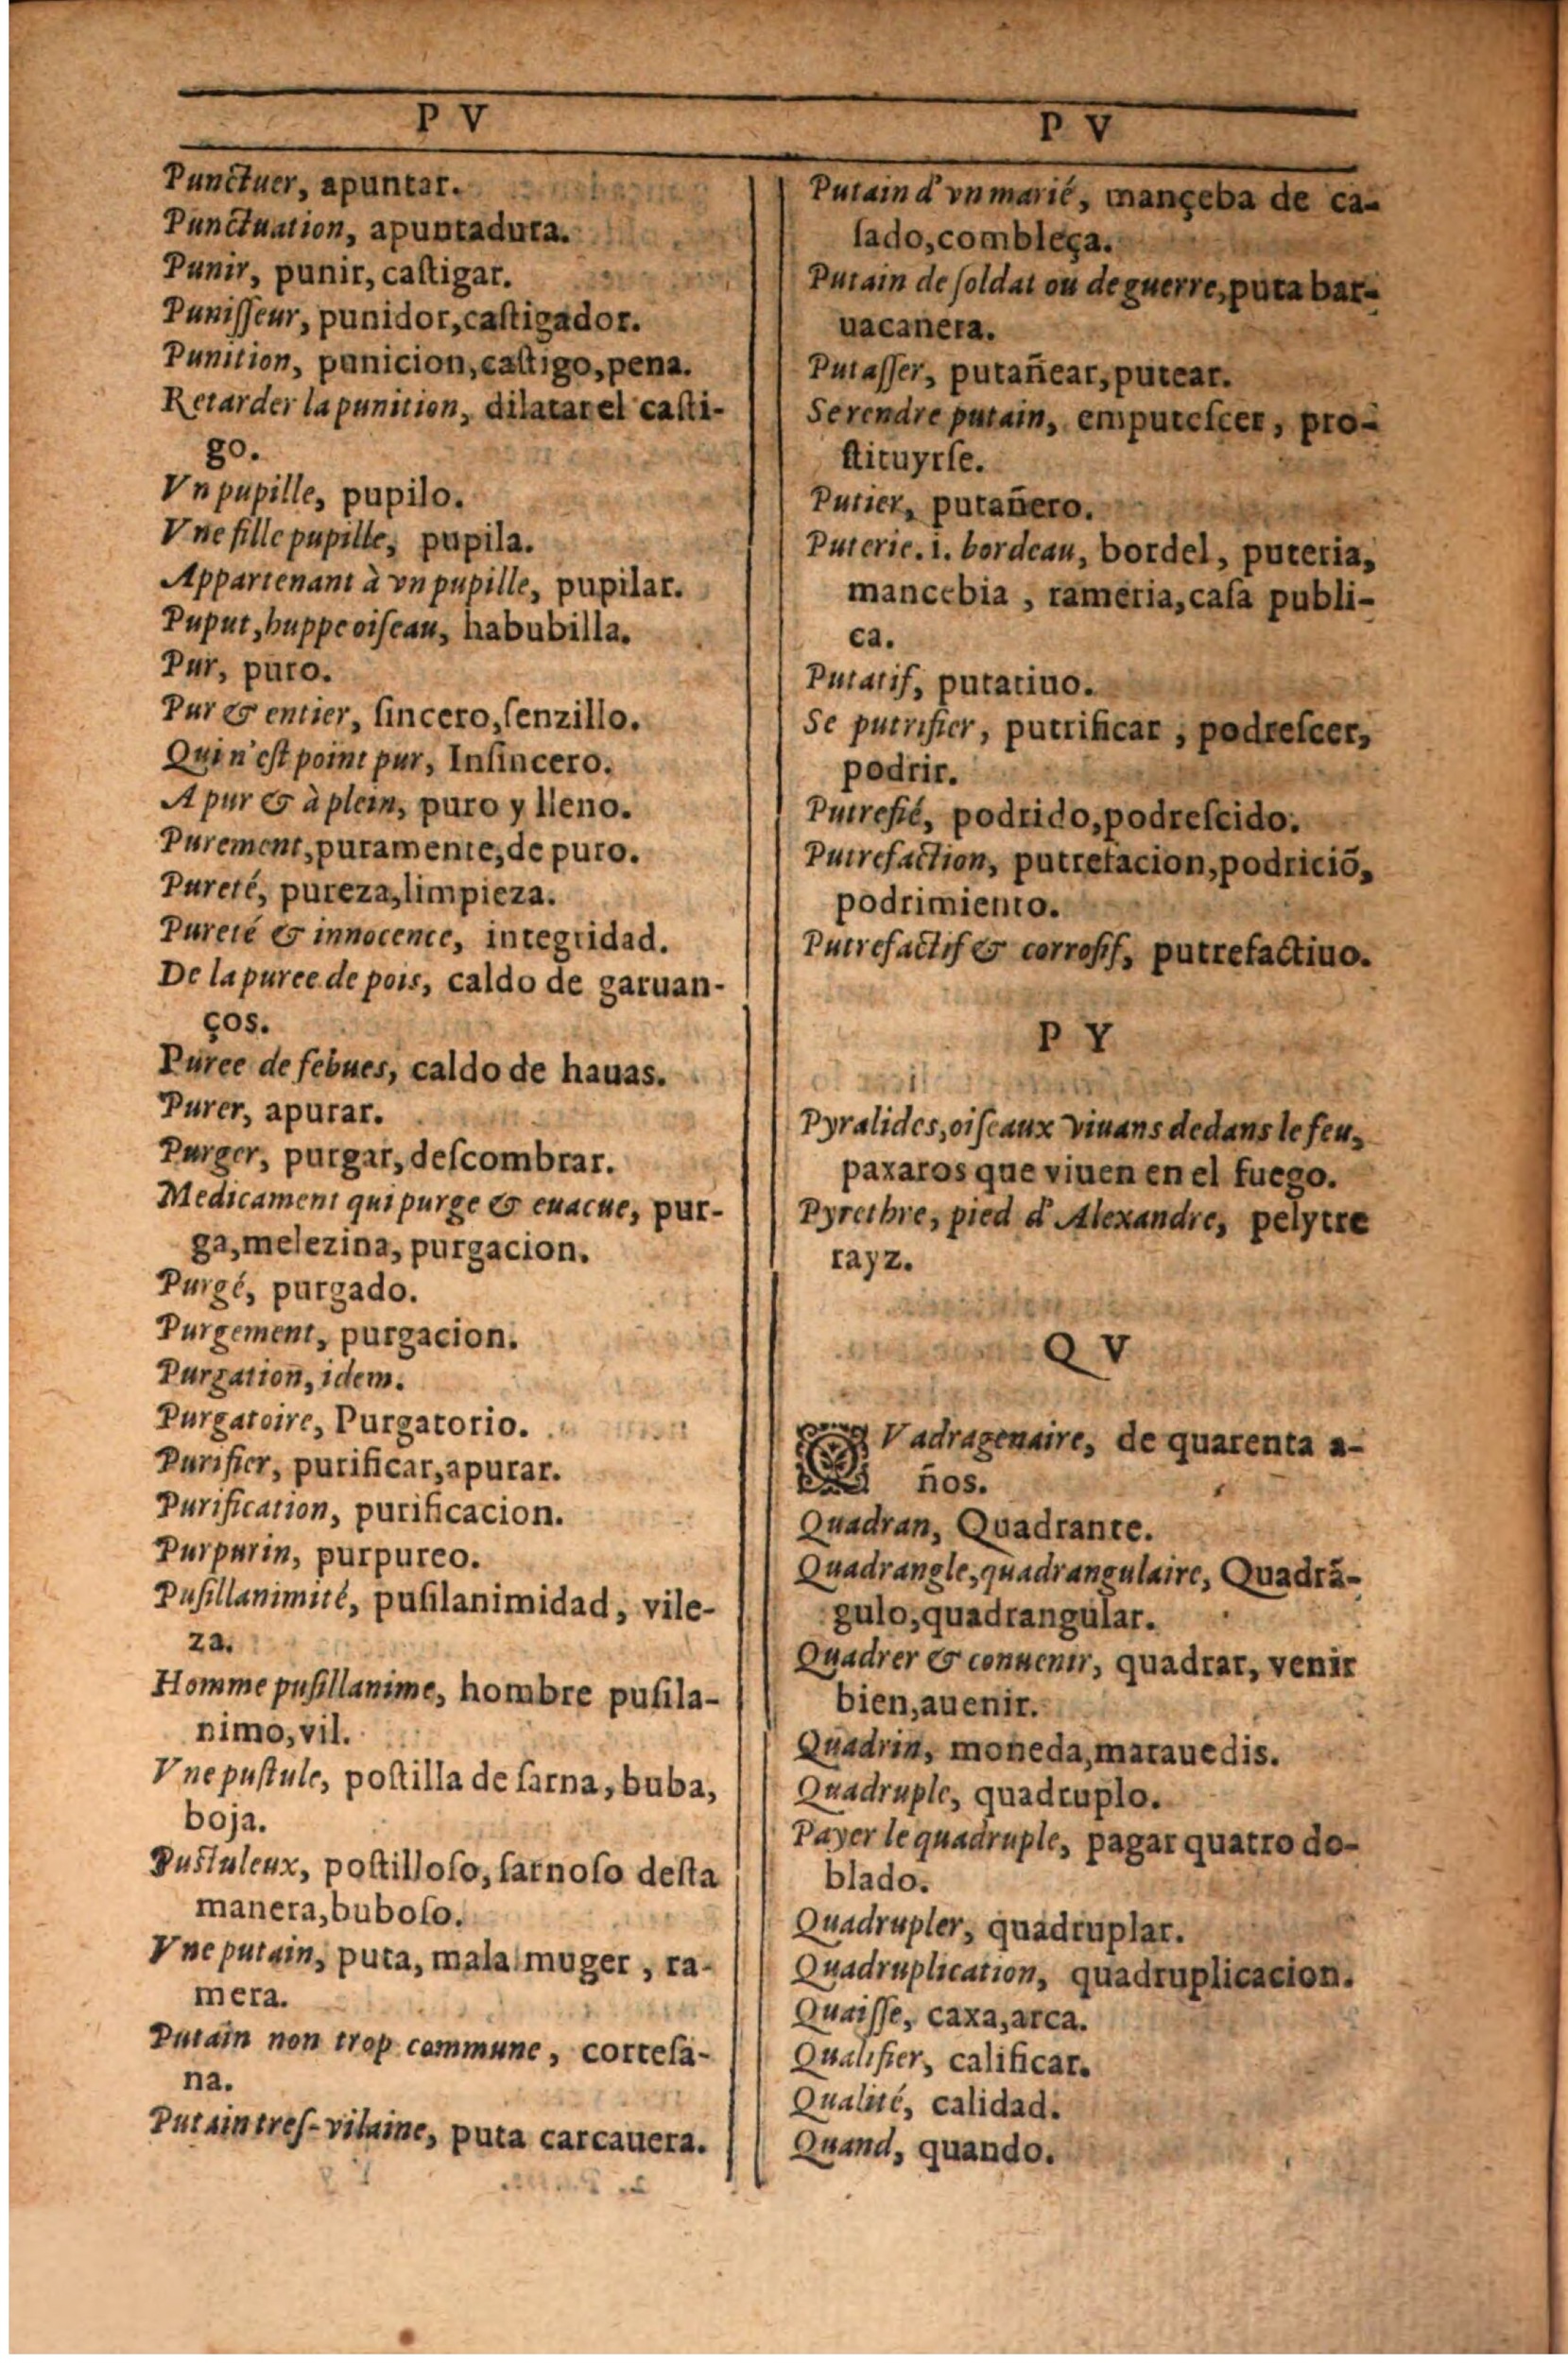 P V
Punctuer, apuntar.
Punctuation, apuntadura.
Punir, punir, caſtigar.
Puniſſeur, punidor,caſtigador.
Punition, punicion,caſtigo,pena.
Retarder la punition, dilatar el caſti-
go.
Vn pupille, pupilo.
Vne fille pupille, pupila.
Appartenant à vn pupille, pupilar.
Puput,huppe oiſeau, habubilla.
Pur, puro.
Pur & entier, ſincero,ſenzillo.
Qui n'eſt point pur, Inſincero.
A pur & à plein, puro y lleno.
Purement,puramente,de puro.
Pureté, pureza,limpieza.
Pureté & innocence, integridad.
De la puree de pois, caldo de garuan-
ços.
Puree de febues, caldo de hauas.
Purer, apurar.
Purger, purgar, deſcombrar.
Medicament qui purge & euacue, pur-
ga,melezina, purgacion.
Purgé, purgado.
Purgement, purgacion.
Purgation, idem.
Purgatoire, Purgatorio.
Purifier, purificar,apurar.
Purification, purificacion.
Purpurin, purpureo.
Puſillanimité, puſilanimidad, vile-
za.
Homme puſillanime, hombre puſila-
nimo,vil.
Vne puſtule, poſtilla de ſarna, buba,
boja.
Puſtuleux, poſtilloſo, ſarnoſo deſta
manera,buboſo.
Vne putain, puta, mala muger , ra-
mera.
Putain non trop commune, corteſa-
na.
Putain treſ-vilaine, puta carcauera.
P V
Putain d'vn marié, mançeba de ca-
ſado,combleça.
Putain de ſoldat ou de guerre,puta bar-
uacanera.
Putaſſer, putañear,putear.
Se rendre putain, emputeſcer, pro-
ſtituyrſe.
Putier, putañero.
Puterie. i. bordeau, bordel, puteria,
mancebia , rameria,caſa publi-
ca.
Putatif, putatiuo.
Se putrifier, putrificar , podreſcer,
podrir.
Putrefié, podrido,podreſcido.
Putrefaction, putrefacion,podriciõ,
podrimiento.
Putrefactif & corroſif, putrefactiuo.
P Y
Pyralides,oiſeaux viuans dedans le feu,
paxaros que viuen en el fuego.
Pyrethre, pied d'Alexandre, pelytre
rayz.
Q V
QVadragenaire, de quarenta a-
ños.
Quadran, Quadrante.
Quadrangle,quadrangulaire, Quadrã-
gulo,quadrangular.
Quadrer & conuenir, quadrar, venir
bien,auenir.
Quadrin, moneda,marauedis.
Quadruple, quadruplo.
Payer le quadruple, pagar quatro do-
blado.
Quadrupler, quadruplar.
Quadruplication, quadruplicacion.
Quaiſſe, caxa,arca.
Qualifier, calificar.
Qualité, calidad.
Quand, quando.